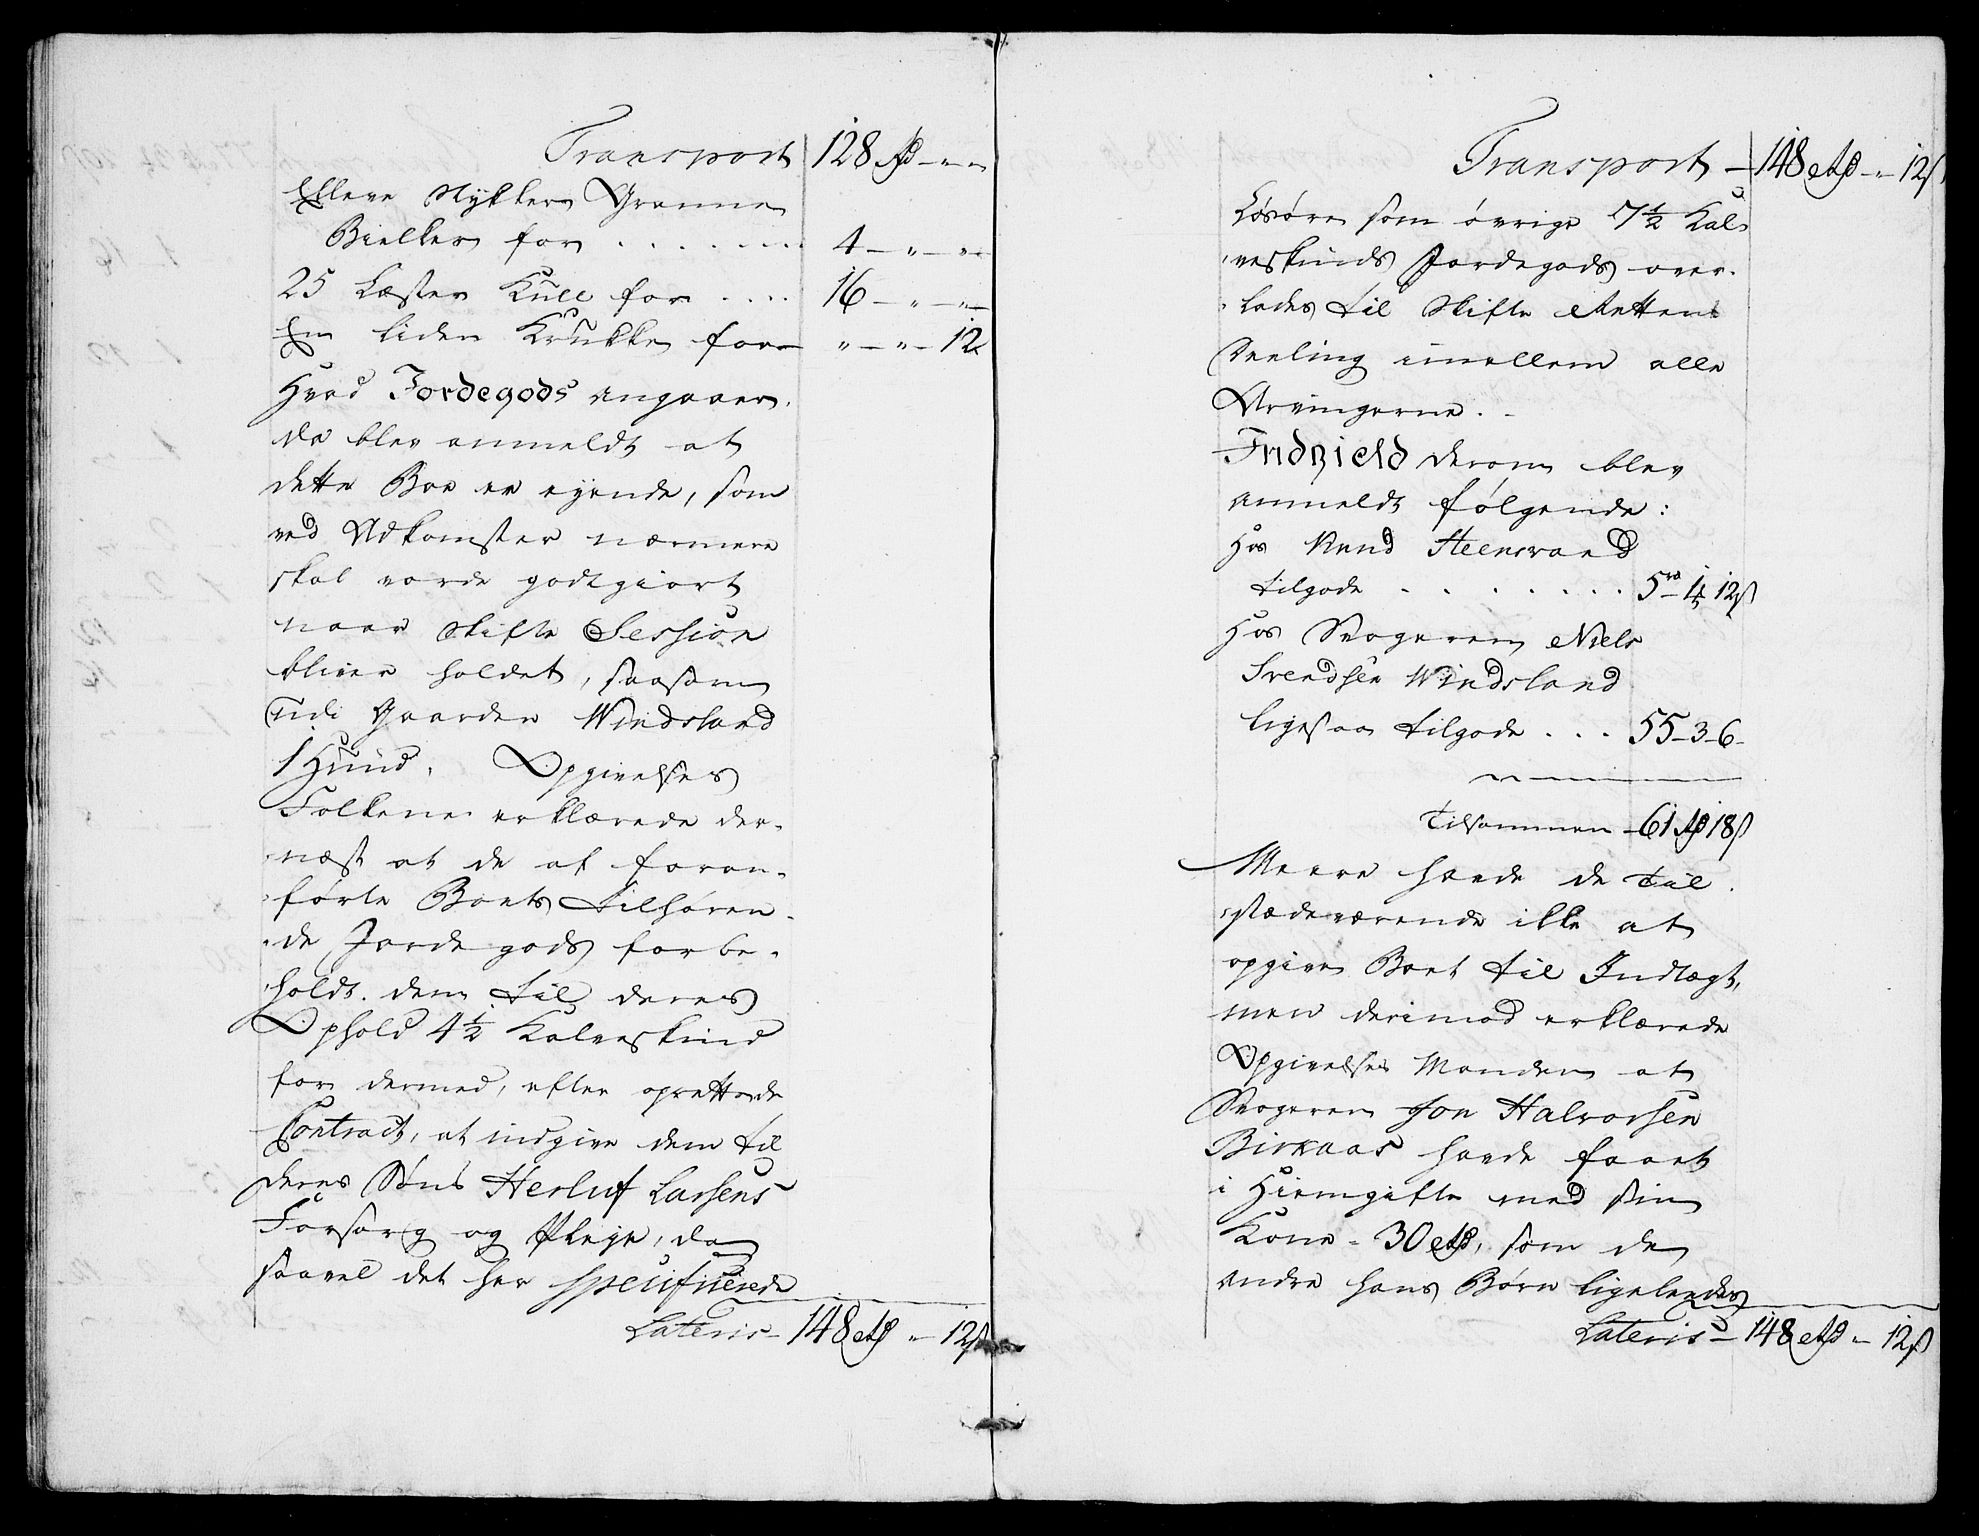 Transport 128 Rd - " - "
Elleve Stykker Granne
Bielker for . . . . . . 4 - " - "
25 Læster Kull for . . . . 16 - " - "
En liden Krukke for " - " - 12
Hvad Jordegods angaaer,
da blev anmeldt at
dette Boe er eyende, som
ved Udkomster nærmere
skal vorde godtgiort
naar Skifte Session
bliver holdet, saasom
udi Gaarden Windsland
1 Hund. Opgivelses
Folkene erklærede der-
næst at de af foran-
førte Boets tilhøren-
de Jordegods forbe-
holdt dem til deres
Ophold 4½ Kalveskind
for dermed, efter oprettede
Contract, at indgive dem til
deres Søns Herluf Larsens
Forsorg og Pleje, da
saavel det her specificerede
Lateris - 148 Rd " - 12 s
Transport - 148 Rd - " 12 s
Løsøre som øvrige 7½ Kal-
veskinds Jordegods over-
lades til Skifte Rettens
Deeling imellem alle
Arvingerne. -
Indgield derom blev
anmeldt følgende:
Hos Knud Steensvand
tilgode . . . . . . . 5 rd 4 12 s
Hos Svogeren Niels
Svendsen Windsland
ligesaa tilgode . . . 55 - 3 - 6 -
Tilsammen - 61 Rd 18 s
Meere havde de Til-
stædeværende ikke at
opgive Boet til Indtægt,
men derimod erklærede
Opgivelses Manden at
Svogeren Jon Halvorsen
Birkaas havde faaet
i Hiemgifte med sin
Kone - 30 Rd, som de
andre hans Børn ligeledes
Lateris - 148 Rd " - 12 s